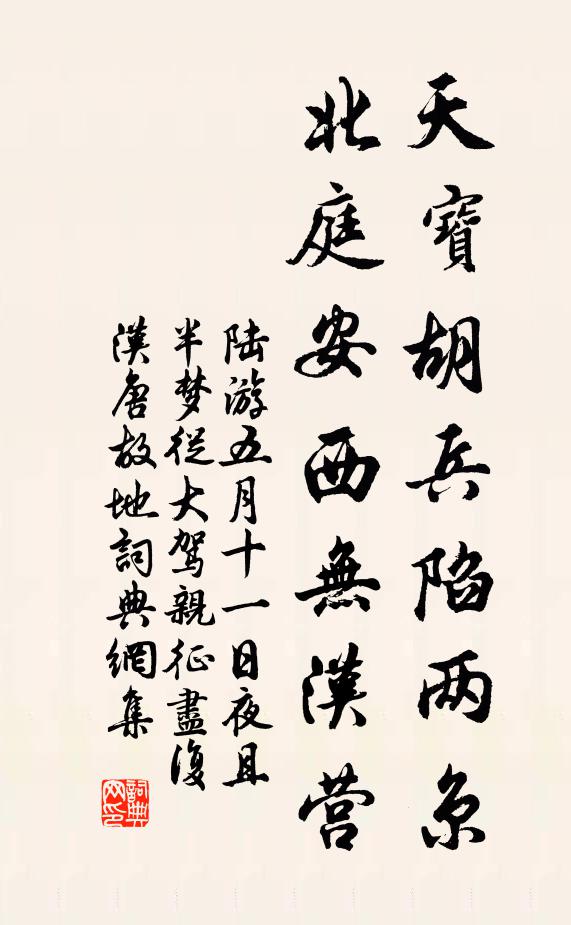 天寶胡兵陷两京
北庭安西無漢营
陆游五月十一日夜且
半梦從大駕親征盡復
漢唐故地詞典網集
詞典
网印